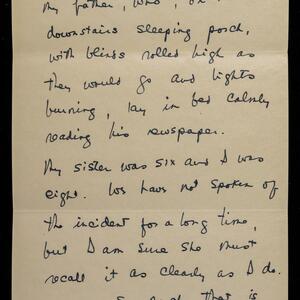 My father, who, on
downstairs sleeping porch,
with blinds rolled high as
they would go and lights
burning, lay in bed calmly
reading his newspaper.
My sister was six and I was
eight. We have not spoken of
the incident for a long time,
but I am sure she must
recall it as clearly as I do.
that is